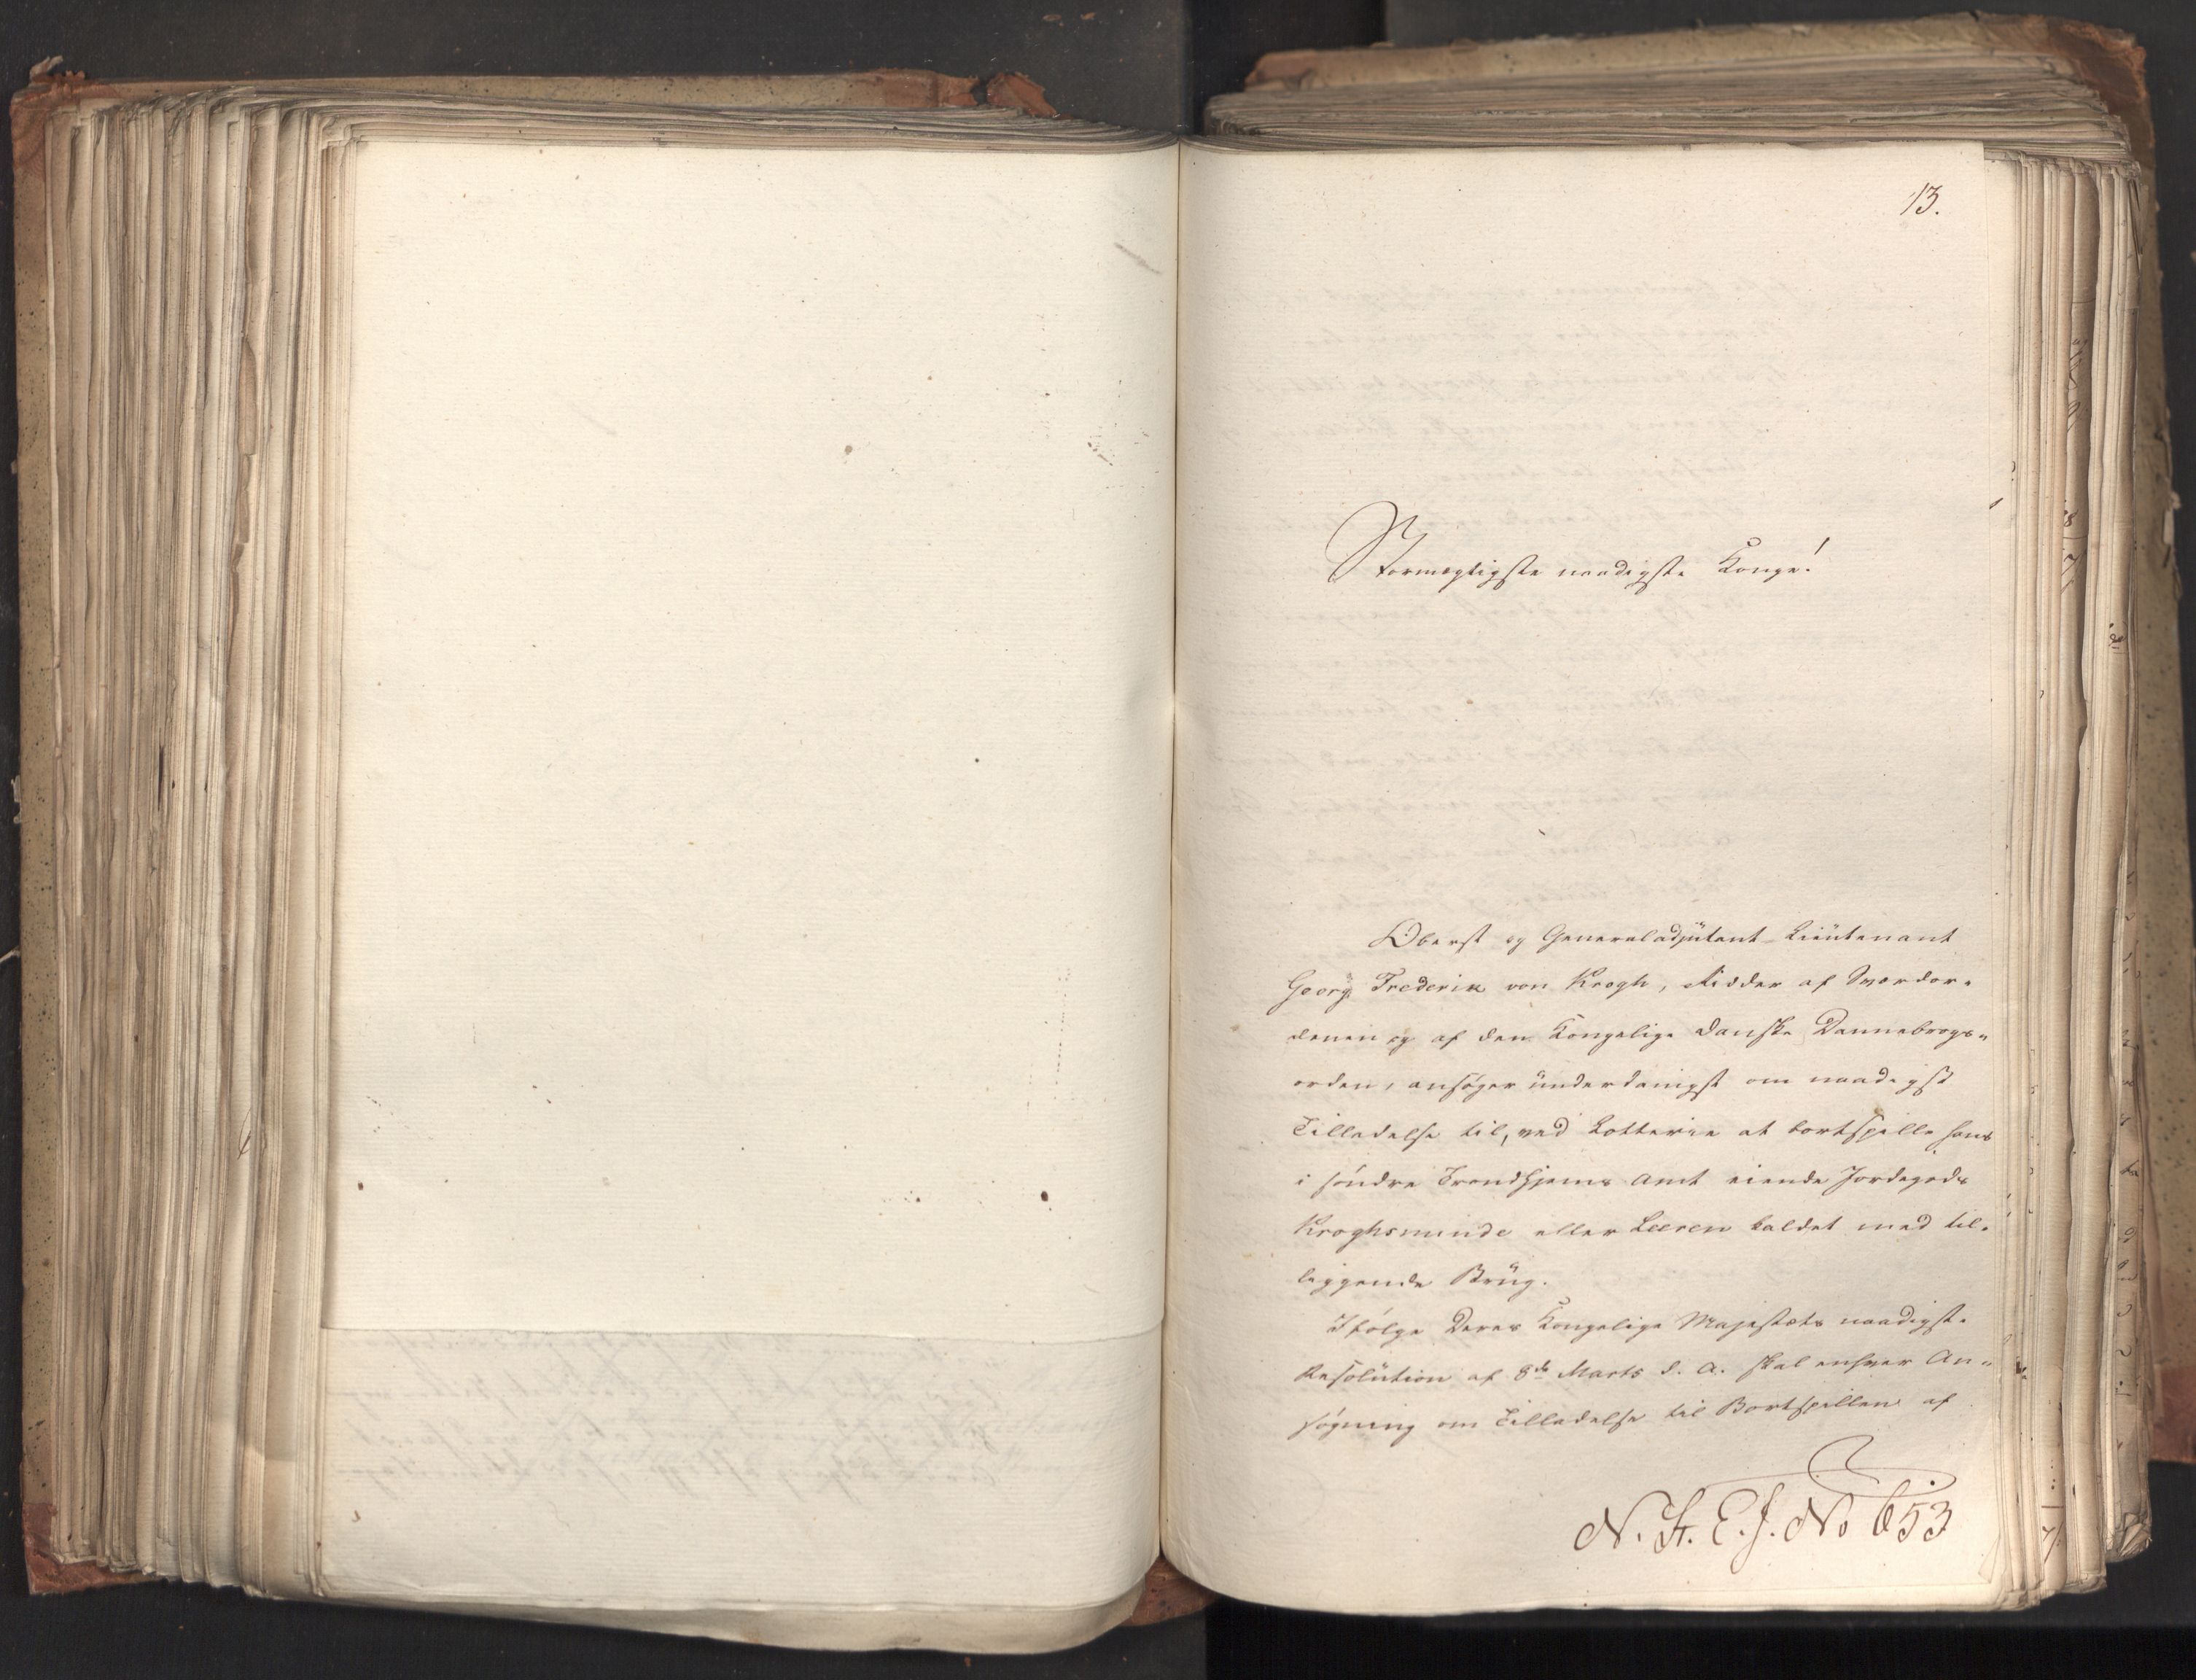 13.
Stormægtigste naadigste Konge!
Oberst og Generaladjütant-Lieütenant
Georg Frederik von Krogh, Ridder af Sværdor-
denen og af den Kongelige danske Dannebrogs-
orden, ansøger ünderdanigst om naadigst
Tilladelse til, ved Lotterie at bortspille hans
i søndre Trondhjems Amt eiende Jordegods
Kroghsminde eller Leeren kaldet med til-
liggende Brüg.
Ifølge Deres Kongelige Majestæts naadigste
Resolütion af 8de Marts d. A. skal enhver An-
søgning om Tilladelse til Bortspillen af
N. St. E. J. No 653